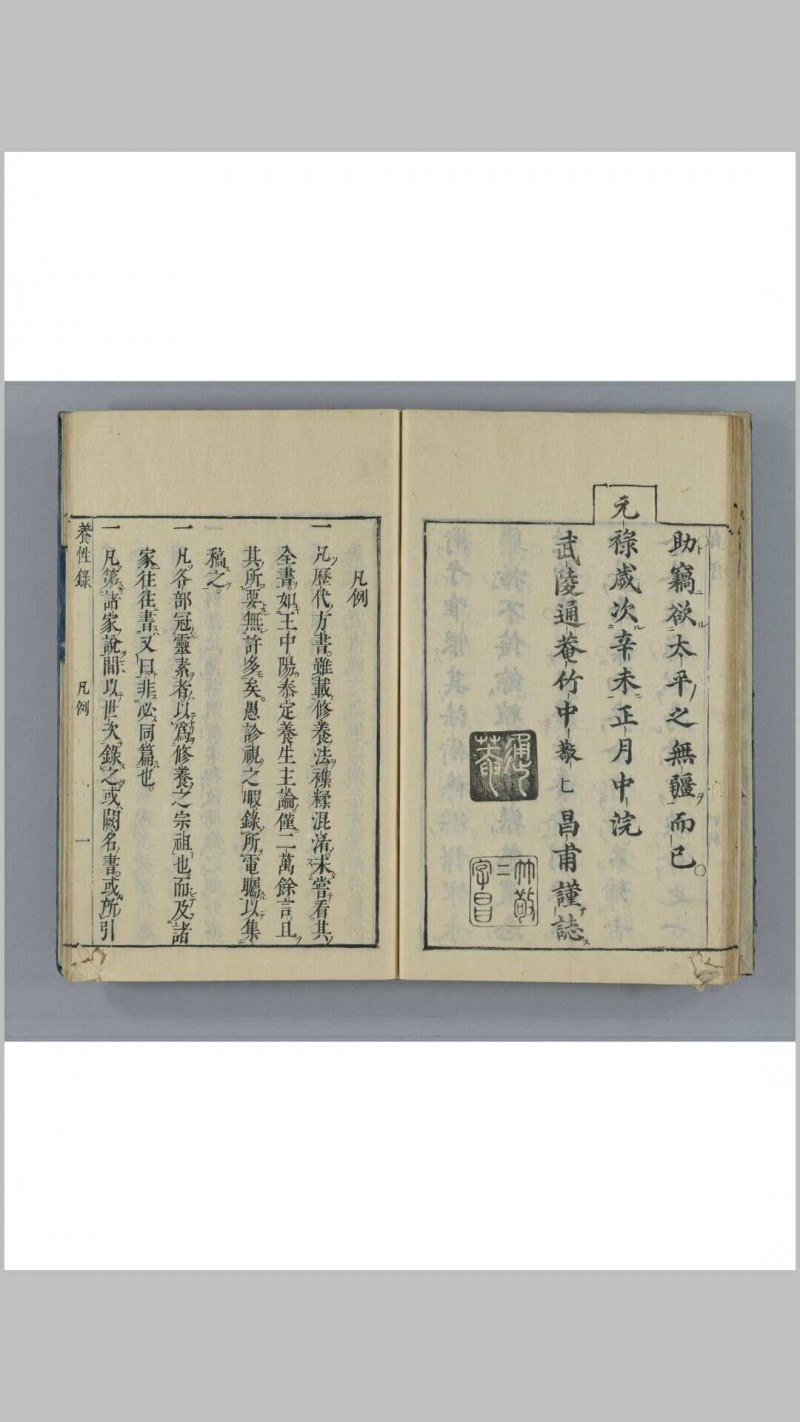 助竊欲太平之無疆而已
元祿歲次辛未正月中浣
武陵通菴竹中敬
昌甫謹誌
通菴
凡例
一凡歷代方書雖載修養法襍糅混淆未嘗看其
全書如王中陽泰定養生主論僅二萬餘言且
其所要無許多矣愚診視之暇錄所電矚以集
稿之
一凡各部冠靈素者以爲修養之宗祖也而及諸
家往往書又曰非必同篇也
一凡第諸家說間以世次錄之或闕名書或所引
養性錄
凡例
一